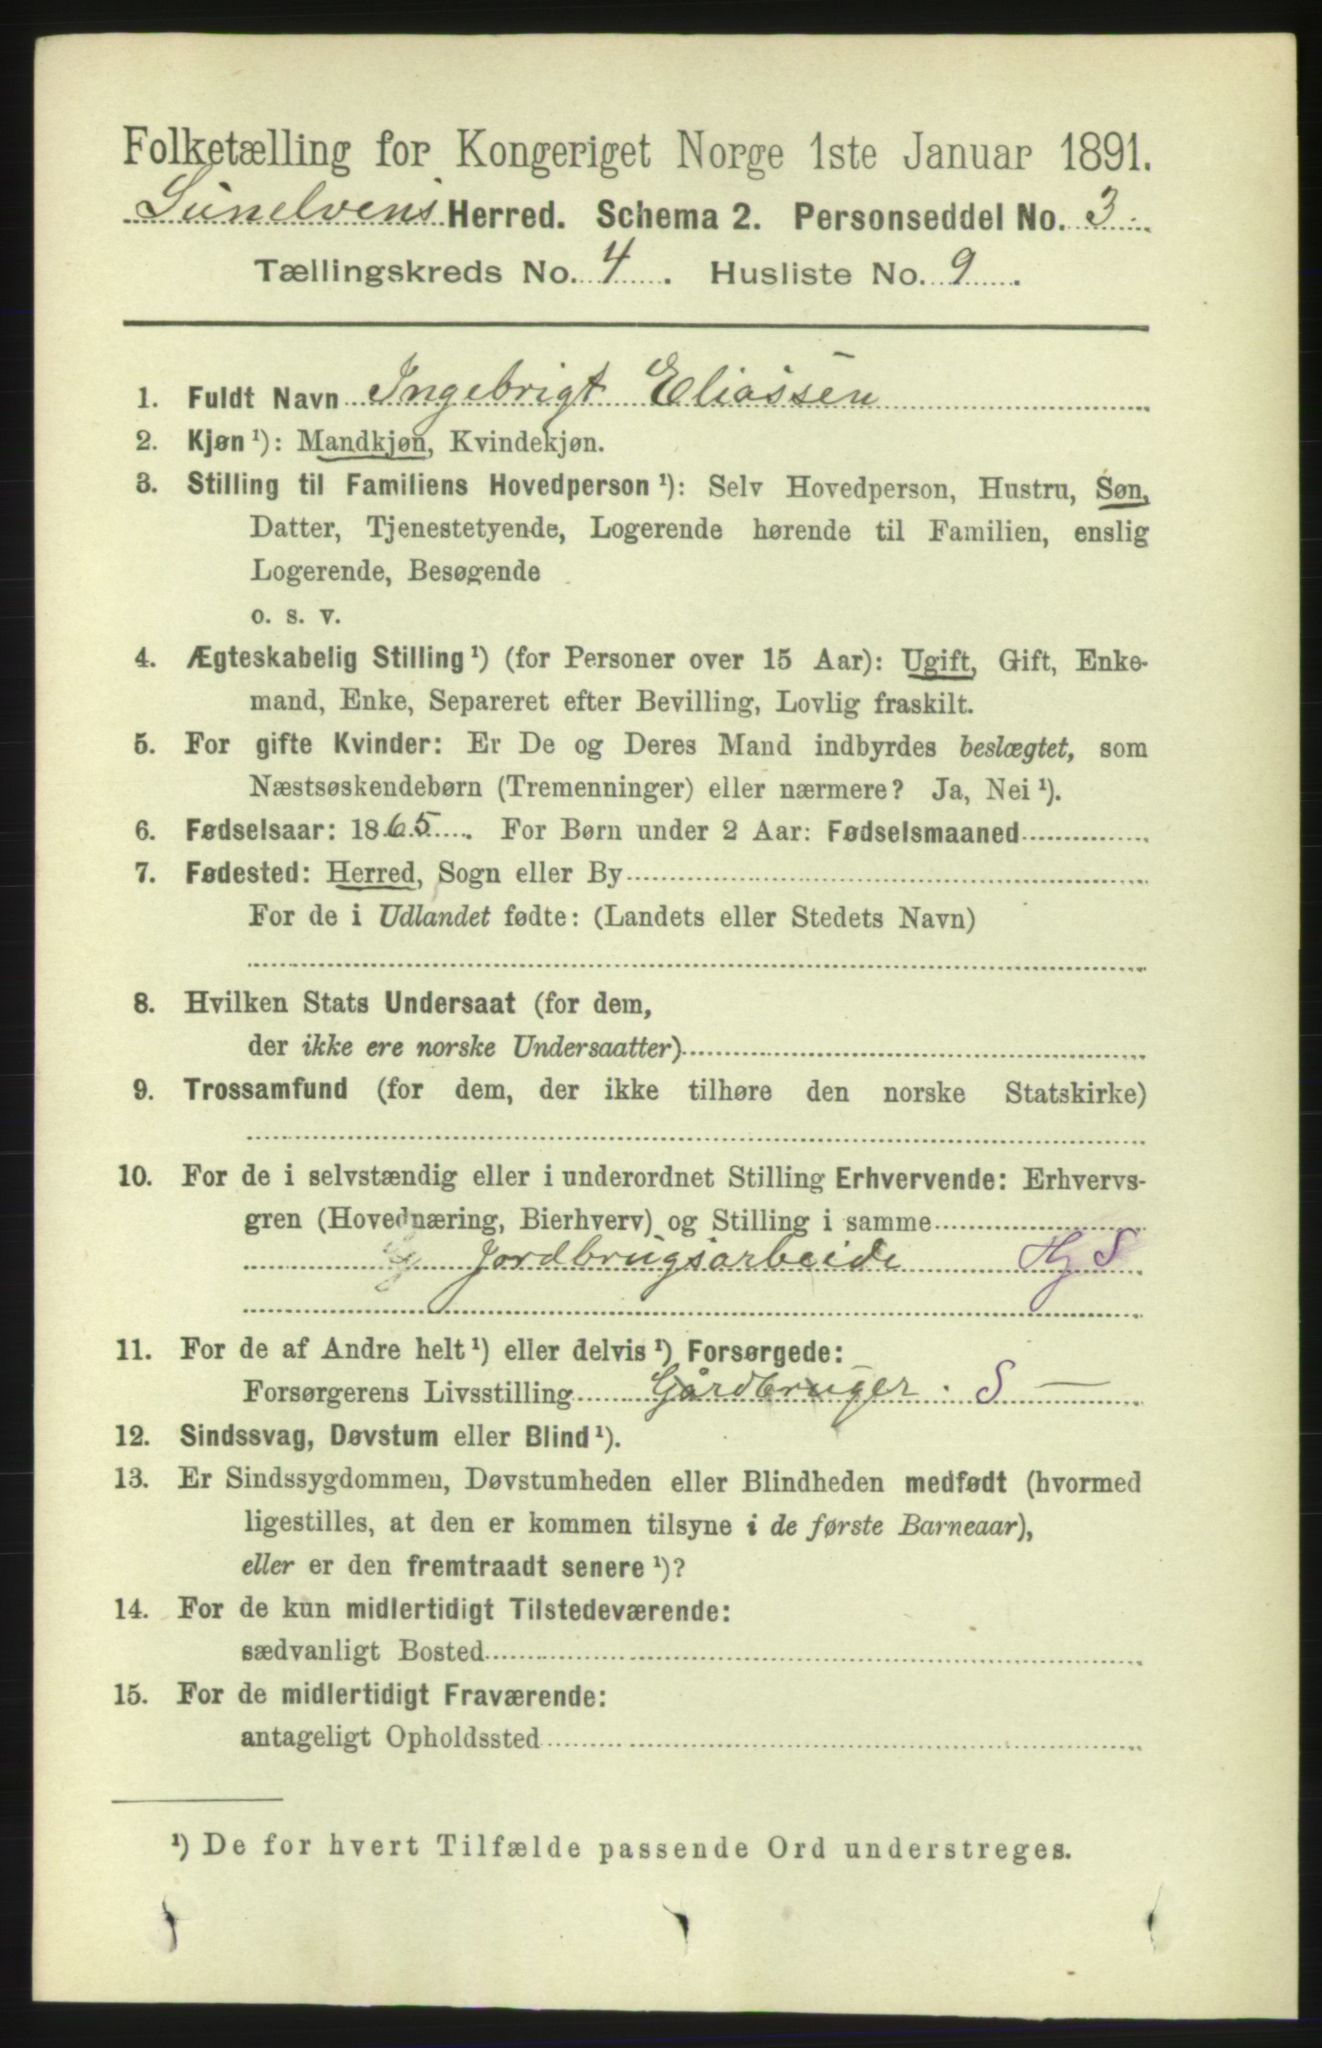 Folketælling for Kongeriget Norge 1ste Januar 1891.
Sunelvens Herred. Schema 2. Personseddel No. 3.
Tællingskreds No. 4. Husliste No. 9.
1. Fuldt Navn Ingebrigt Eliassen
2. Kjøn ¹): Mandkjøn, Kvindekjøn.
3. Stilling til Familiens Hovedperson ¹): Selv Hovedperson, Hustru, Søn,
Datter, Tjenestetyende, Logerende hørende til Familien, enslig
Logerende, Besøgende
o. s. v.
4. Ægteskabelig Stilling ¹) (for Personer over 15 Aar): Ugift, Gift, Enke-
mand, Enke, Separeret efter Bevilling, Lovlig fraskilt.
5. For gifte Kvinder: Er De og Deres Mand indbyrdes beslægtet, som
Næstsøskendebørn (Tremenninger) eller nærmere? Ja, Nei ¹).
6. Fødselsaar: 1865. For Børn under 2 Aar: Fødselsmaaned
7. Fødested: Herred, Sogn eller By
For de i Udlandet fødte: (Landets eller Stedets Navn)
8. Hvilken Stats Undersaat (for dem,
der ikke ere norske Undersaatter)
9. Trossamfund (for dem, der ikke tilhøre den norske Statskirke)
10. For de i selvstændig eller i underordnet Stilling Erhvervende: Erhvervs-
gren (Hovednæring, Bierhverv) og Stilling i samme
Jordbrugsarbeide Hj S
11. For de af Andre helt ¹) eller delvis ¹) Forsørgede:
Forsørgerens Livsstilling Gårdbruger. S —
12. Sindssvag, Døvstum eller Blind ¹).
13. Er Sindssygdommen, Døvstumheden eller Blindheden medfødt (hvormed
ligestilles, at den er kommen tilsyne i de første Barneaar),
eller er den fremtraadt senere ¹)?
14. For de kun midlertidigt Tilstedeværende:
sædvanligt Bosted
15. For de midlertidigt Fraværende:
antageligt Opholdssted
¹) De for hvert Tilfælde passende Ord understreges.